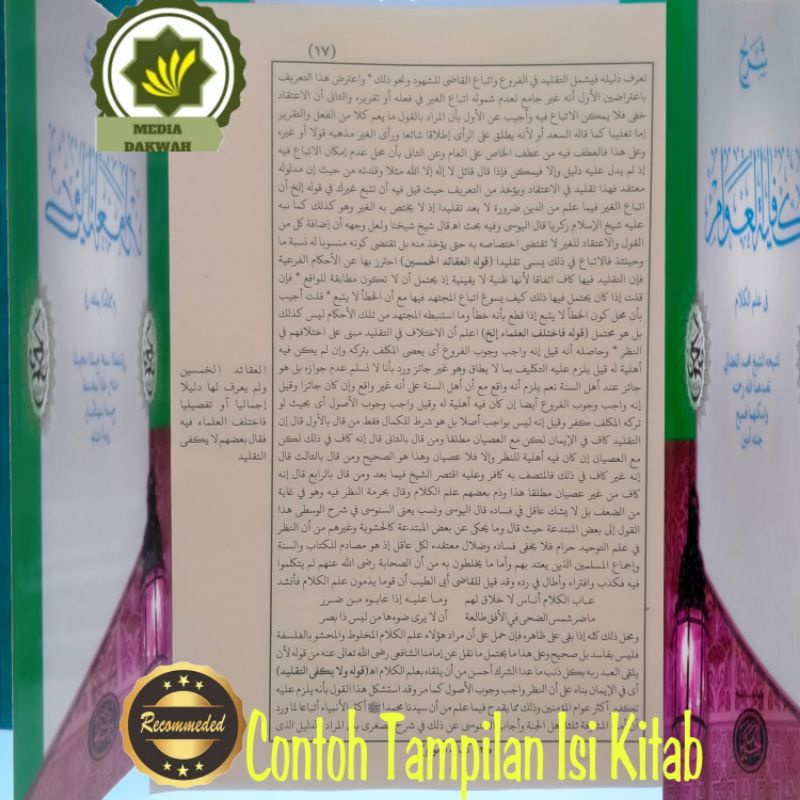 (١٧)
تعرف دليله فيشمل التقليد في الفروع واتباع القاضى للشهود ونحو ذلك * واعترض هذا التعريف
باعتراضين الأول أنه غير جامع لعدم شموله اتباع الغير في فعله أو تقريره والثانى أن الاعتقاد
خفى فلا يمكن الاتباع فيه وأجيب عن الأول بأن المراد بالقول ما يعم كلا من الفعل والتقرير
إما تغليبا كما قاله السعد أو لأنه يطلق على الرأى إطلاقا شائعا ورأى الغير مذهبه قولا أو غيره
وعلى هذا فالعطف فيه من عطف الخاص على العام وعن الثانى بأن محل عدم إمكان الاتباع فيه
إذ لم يدل عليه دليل وإلا فيمكن فإذا قال قائل لا إله إلا الله مثلا وقلدته من حيث إن مدلوله
معتقد فهذا تقليد في الاعتقاد ويؤخذ من التعريف حيث قيل فيه أن تتبع غيرك في قوله إلخ أن
اتباع الغير فيما علم من الدين ضرورة لا يعد تقليدا إذ لا يختص به الغير وهو كذلك كما نبه
عليه شيخ الإسلام زكريا قال اليوسى وفيه بحث اه قال شيخ شيخنا ولعل وجهه أن إضافة كل من
القول والاعتقاد للغير لا تقتضى اختصاصه به حتى يؤخذ منه بل تقتضى كونه منسوبا له نسبة ما
وحينئذ فالاتباع في ذلك يسمى تقليدا (قوله العقائد الخمسين) احترز بها عن الأحكام الفرعية
فإن التقليد فيها كاف اتفاقا لأنها ظنية لا يقينية إذ يحتمل أن لا تكون مطابقة للواقع * فإن
قلت إذا كان يحتمل فيها ذلك كيف يسوغ اتباع المجتهد فيها مع أن الخطأ لا يتبع * قلت أجيب
بأن محل كون الخطأ لا يتبع إذا قطع بأنه خطأ وما استنبطه المجتهد من تلك الأحكام ليس كذلك
بل هو محتمل (قوله فاختلف العلماء إلخ) اعلم أن الاختلاف في التقليد مبنى على اختلافهم في
النظر * وحاصله أنه قيل إنه واجب وجوب الفروع أى يعصى المكلف بتركه وإن لم يكن فيه
أهلية له قيل يلزم عليه التكليف بما لا يطاق وهو غير جائز ورد بأنا لا نسلم عدم جوازه بل هو
جائز عند أهل السنة نعم يلزم أنه واقع مع أن أهل السنة على أنه غير واقع وإن كان جائزا وقيل
إنه واجب وجوب الفروع أيضا إن كان فيه أهلية له وقيل واجب وجوب الأصول أى بحيث لو
تركه المكلف كفر وقيل إنه ليس بواجب أصلا بل هو شرط للكمال فقط من قال بالأول قال إن
التقليد كاف في الإيمان لكن مع العصيان مطلقا ومن قال بالثانى قال إنه كاف في ذلك لكن
مع العصيان إن كان فيه أهلية للنظر وإلا فلا عصيان وهذا هو الصحيح ومن قال بالثالث قال
إنه غير كاف في ذلك فالمتصف به كافر وعليه اقتصر الشيخ فيما بعد ومن قال بالرابع قال إنه
كاف من غير عصيان مطلقا هذا وذم بعضهم علم الكلام وقال بحرمة النظر فيه وهو في غاية
من الضعف بل لا يشك عاقل في فساده قال اليوسى ونسب يعنى السنوسى في شرح الوسطى هذا
القول إلى بعض المبتدعة حيث قال وما يحكى عن بعض المبتدعة كالحشوية وغيرهم من أن النظر
في علم التوحيد حرام فلا يخفى فساده وضلال معتقده لكل عاقل إذ هو مصادم للكتاب والسنة
وإجماع المسلمين الذين يعتد بهم وأما ما يختلقون به من أن الصحابة رضى الله عنهم لم يتكلموا
فيه فكذب وافتراء وأطال في رده وقد قيل للقاضى أبى الطيب أن قوما يذمون علم الكلام فأنشد
عـاب الكلام أنـاس لا خلاق لهم    ومـا عليـه إذا عابـوه مـن ضـرر
ماضر شمس الضحى في الأفق طالعة    أن لا يرى ضوءها من ليس ذا بصر
ومحل ذلك كله إذا بقى على ظاهره فإن حمل على أن مراد هؤلاء علم الكلام المخلوط والمحشو بالفلسفة
فليس بفاسد بل صحيح وعلى هذا ما يحتمل ما نقل عن إمامنا الشافعى رضى الله تعالى عنه من قوله لأن
يلقى العبد ربه بكل ذنب ما عدا الشرك أحسن من أن يلقاه بعلم الكلام اه (قوله ولا يكفى التقليد)
أى في الإيمان بناء على أن النظر واجب وجوب الأصول كما مر وقد استشكل هذا القول بأنه يلزم عليه
تكفير أكثر عوام المؤمنين وذلك مما يقدح فيما علم من أن سيدنا محمدا ﷺ أكثر الأنبياء أتباعا لما ورد
العقائد الخمسين
ولم يعرف لها دليلا
إجماليا أو تفصيليا
فاختلف العلماء فيه
فقال بعضهم لا يكفى
التقليد
شرح
في علم الكلام
MEDIA
DAKWAH
Recommeded
Contoh Tampilan Isi Kitab